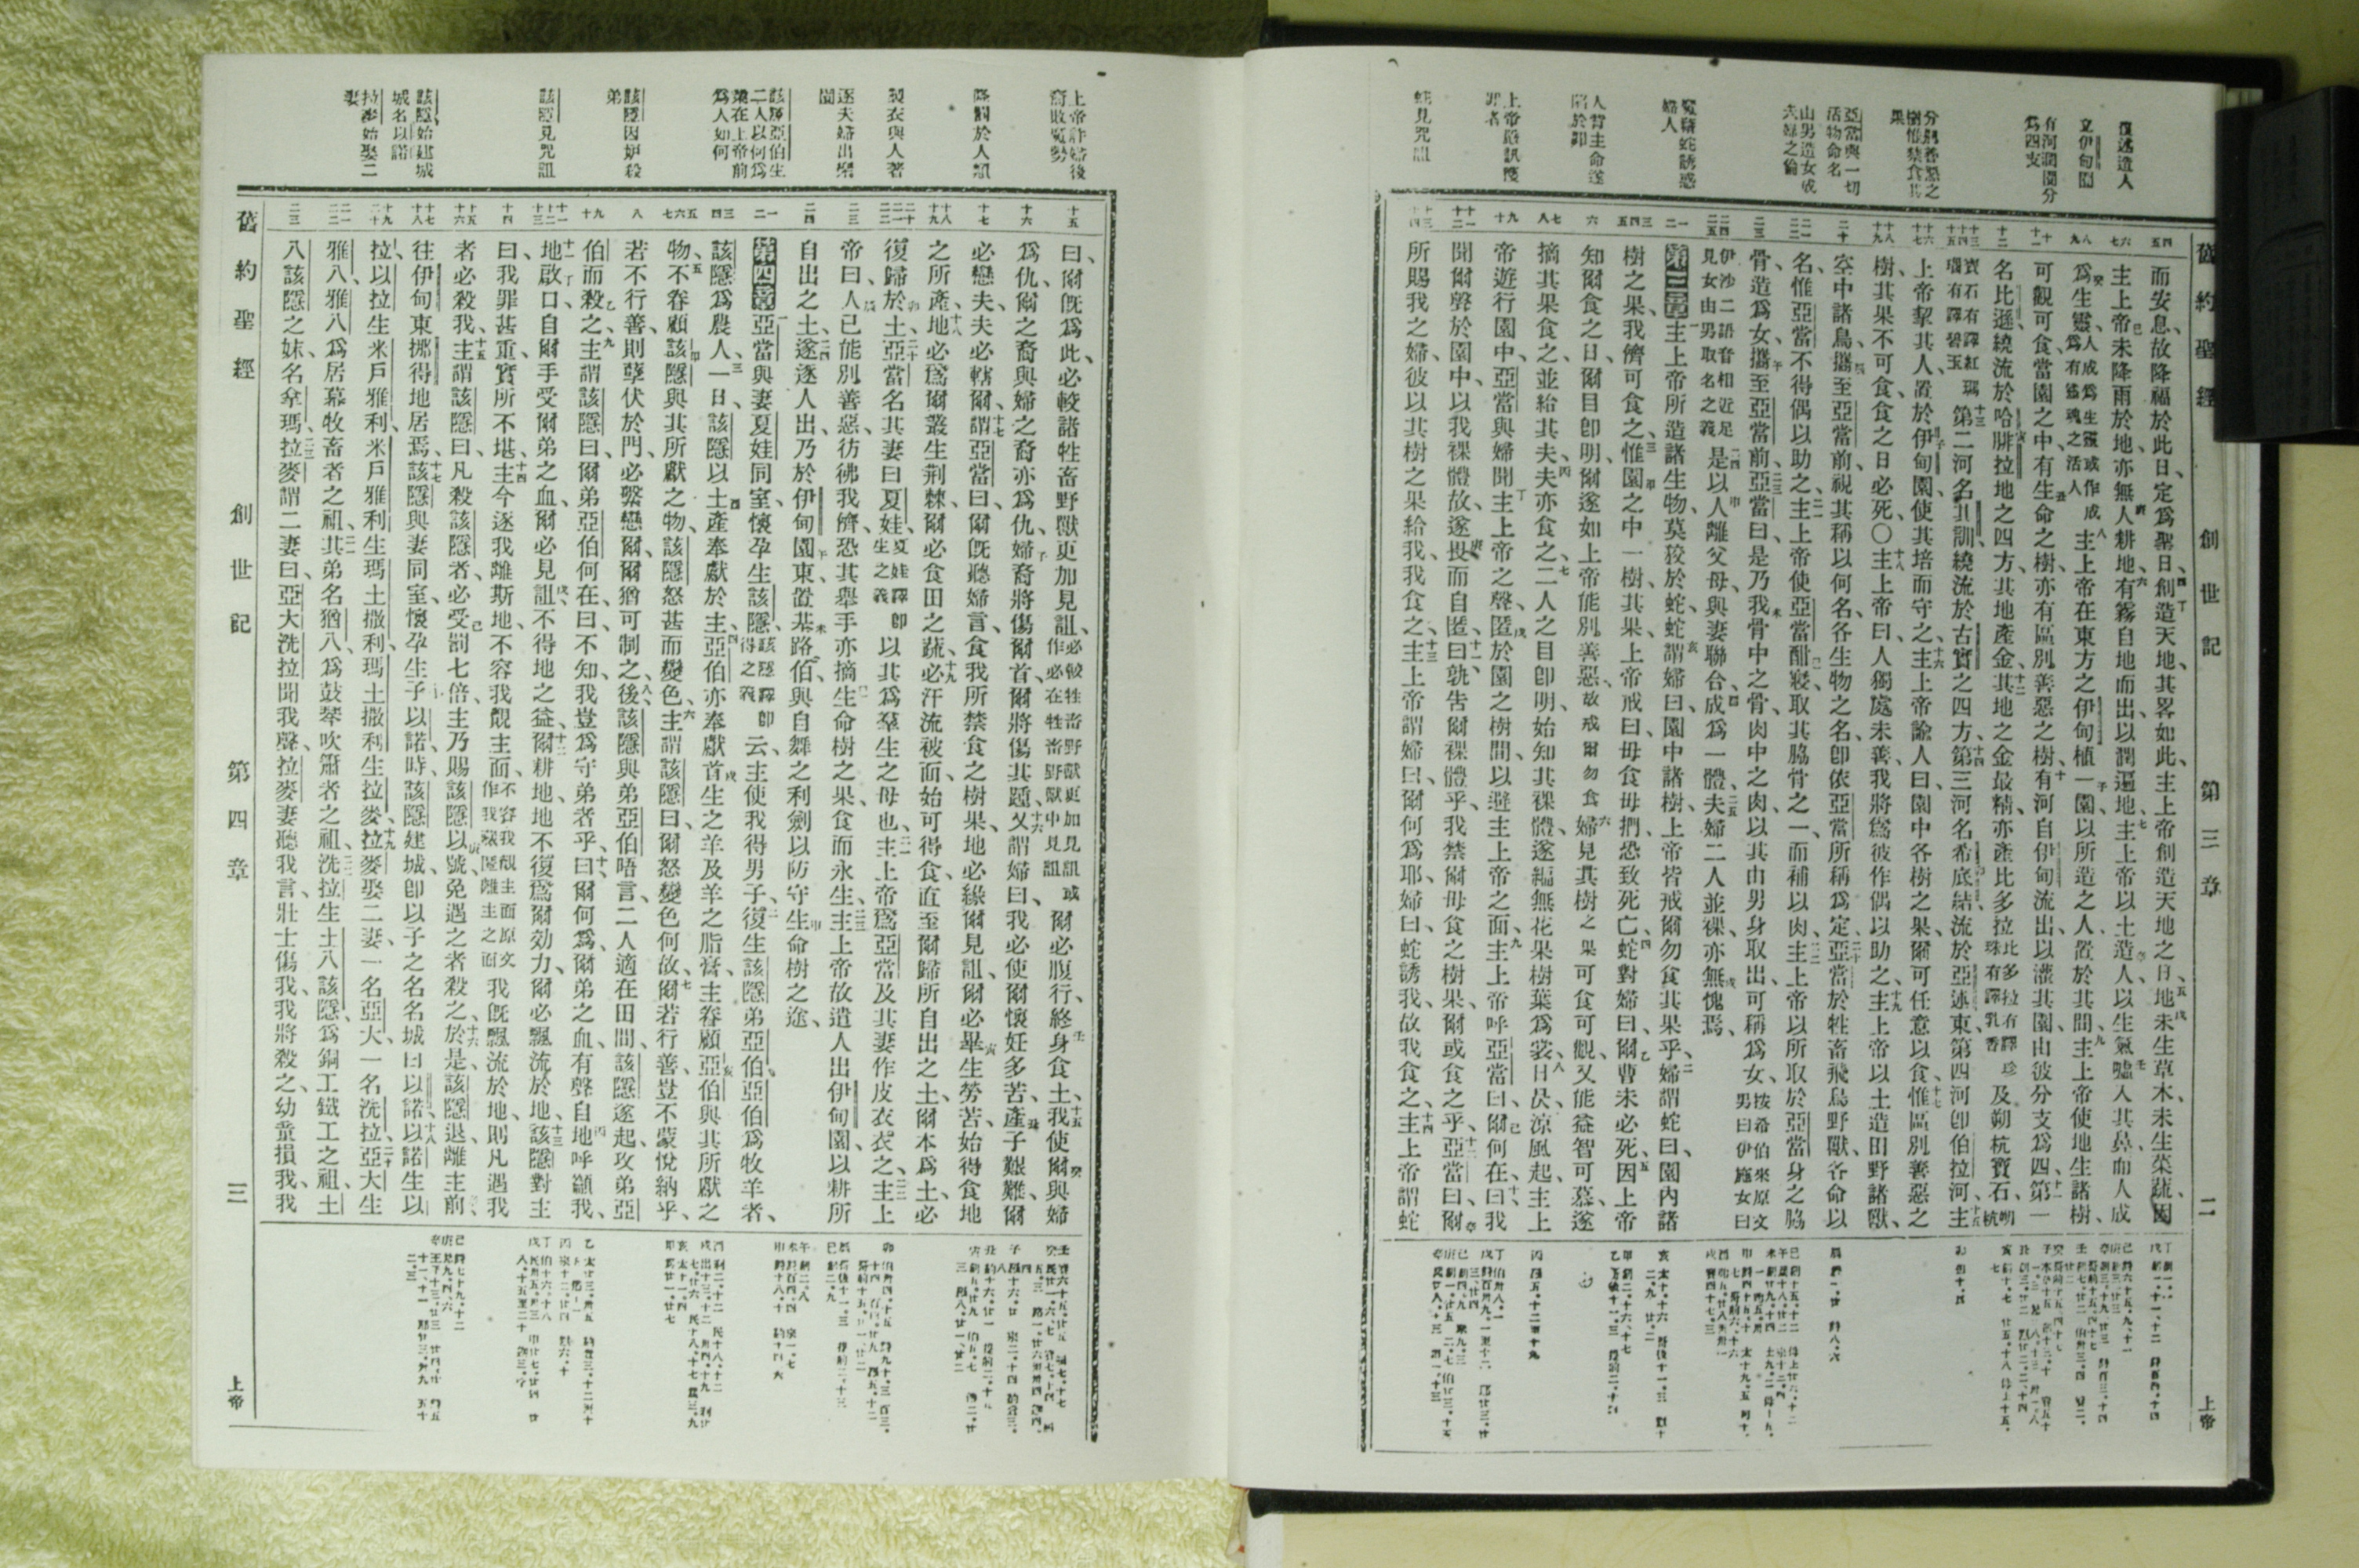 舊約聖經 創世記 第三章 二 上帝
復述造人
立伊甸園
有河潤園分
為四支
分別善惡之
樹惟禁食其
果
亞當與一切
活物命名
由男造女成
夫婦之倫
魔藉蛇誘惑
婦人
人背主命遂
陷於罪
上帝審訊獲
罪者
蛇見咒詛
而安息、故降福於此日、定為聖日、創造天地、其畧如此、主上帝創造天地之日、地未生草木、未生菜蔬、因
主上帝未降雨於地、亦無人耕地、有霧自地而出、以潤遍地、主上帝以土造人、以生氣噓入其鼻、而人成
為生靈、人成為生靈或作成為有靈魂之活人 主上帝在東方之伊甸植一園、以所造之人、置於其間、主上帝使地生諸樹、
可觀可食、當園之中、有生命之樹、亦有區別善惡之樹、有河自伊甸流出、以灌其園、由彼分支為四、第一
名比遜、繞流於哈腓拉地之四方、其地產金、其地之金最精、亦產比多拉比多拉有譯珍珠有譯乳香及朔杭寶石、朔杭
寶石有譯紅瑪瑙有譯碧玉 第二河名其訓、繞流於古實之四方、第三河名希底結、流於亞述東、第四河即伯拉河、主
上帝挈其人、置於伊甸園、使其培而守之、主上帝諭人曰、園中各樹之果、爾可任意以食、惟區別善惡之
樹、其果不可食、食之日必死〇主上帝曰、人獨處未善、我將為彼作偶以助之、主上帝以土造田野諸獸、
空中諸鳥、攜至亞當前、視其稱以何名、各生物之名、即依亞當所稱為定、亞當於牲畜飛鳥野獸、各命以
名、惟亞當不得偶以助之、主上帝使亞當酣寢、取其脇骨之一、而補以肉、主上帝以所取於亞當身之脇
骨、造為女、攜至亞當前、亞當曰、是乃我骨中之骨、肉中之肉、以其由男身取出、可稱為女、按希伯來原文男曰伊施女曰
伊沙二語音相近足見女由男取名之義 是以人離父母、與妻聯合、成為一體、夫婦二人並裸、亦無愧焉、
第三章 主上帝所造諸生物、莫狡於蛇、蛇謂婦曰、園中諸樹、上帝皆戒爾勿食其果乎、婦謂蛇曰、園內諸
樹之果、我儕可食之、惟園之中一樹、其果、上帝戒曰、毋食毋捫、恐致死亡、蛇對婦曰、爾曹未必死、因上帝
知爾食之日、爾目即明、爾遂如上帝能別善惡、故戒爾勿食婦見其樹之果可食可觀、又能益智可慕、遂
摘其果食之、並給其夫、夫亦食之、二人之目即明、始知其裸體、遂編無花果樹葉為裳、日昃涼風起、主上
帝遊行園中、亞當與婦聞主上帝之聲、匿於園之樹間、以避主上帝之面、主上帝呼亞當曰、爾何在、曰、我
聞爾聲於園中、以我裸體故、遂畏而自匿、曰、孰告爾裸體乎、我禁爾毋食之樹果、爾或食之乎、亞當曰、爾
所賜我之婦、彼以其樹之果給我、我食之、主上帝謂婦曰、爾何為耶、婦曰、蛇誘我、故我食之、主上帝謂蛇
上帝許婦後
裔敗魔勢
降罰於人類
製衣與人著
逐夫婦出樂
園
該隱亞伯生
二人以何為
業在上帝前
為人如何
該隱因妒殺
弟
該隱見咒詛
該隱始建城
城名以諾
拉麥始娶二
妻
曰、爾既為此、必較諸牲畜野獸更加見詛、必較牲畜野獸更加見詛或作必在牲畜野獸中見詛爾必腹行、終身食土、我使爾與婦
為仇、爾之裔與婦之裔亦為仇、婦裔將傷爾首、爾將傷其踵、又謂婦曰、我必使爾懷妊多苦、產子艱難、爾
必戀夫、夫必轄爾、謂亞當曰、爾既聽婦言、食我所禁食之樹果、地必緣爾見詛、爾必畢生勞苦、始得食地
之所產、地必為爾叢生荊棘、爾必食田之蔬、必汗流被面、始可得食、直至爾歸所自出之土、爾本為土、必
復歸於土、亞當名其妻曰夏娃、夏娃譯即生之義以其為羣生之母也、主上帝為亞當及其妻作皮衣衣之、主上
帝曰、人已能別善惡、彷彿我儕、恐其舉手亦摘生命樹之果、食而永生、主上帝故遣人出伊甸園、以耕所
自出之土、遂逐人出、乃於伊甸園東、置基路伯、與自舞之利劍、以防守生命樹之途、
第四章 亞當與妻夏娃同室、懷孕生該隱、該隱譯即得之義云、主使我得男子、復生該隱弟亞伯、亞伯為牧羊者、
該隱為農人、一日、該隱以土產奉獻於主、亞伯亦奉獻首生之羊、及羊之脂膏、主眷顧亞伯與其所獻之
物、不眷顧該隱與其所獻之物、該隱怒甚而變色、主謂該隱曰、爾怒變色何故、爾若行善、豈不蒙悅納乎、
若不行善、則孽伏於門、必繫戀爾、爾猶可制之、後該隱與弟亞伯晤言、二人適在田間、該隱遂起、攻弟亞
伯而殺之、主謂該隱曰、爾弟亞伯何在、曰、不知、我豈為守弟者乎、曰、爾何為、爾弟之血、有聲自地呼籲我、
地啟口、自爾手受爾弟之血、爾必見詛、不得地之益、爾耕地、地不復為爾効力、爾必飄流於地、該隱對主
曰、我罪甚重、實所不堪、主今逐我離斯地、不容我覿主面、不容我覿主面原文作我藏匿離主之面我既飄流於地、則凡遇我
者必殺我、主謂該隱曰、凡殺該隱者、必受罰七倍、主乃賜該隱以號、免遇之者殺之、於是該隱退離主前、
往伊甸東挪得地居焉、該隱與妻同室、懷孕生子以諾、時、該隱建城、即以子之名名城曰以諾、以諾生以
拉、以拉生米戶雅利、米戶雅利生瑪土撒利、瑪土撒利生拉麥、拉麥娶二妻、一名亞大、一名洗拉、亞大生
雅八、雅八為居幕牧畜者之祖、其弟名猶八、為鼓琴吹簫者之祖、洗拉生土八該隱、為銅工鐵工之祖、土
八該隱之妹、名拿瑪、拉麥謂二妻曰、亞大洗拉聞我聲、拉麥妻聽我言、壯士傷我、我將殺之、幼童損我、我
舊約聖經 創世記 第四章 三 上帝